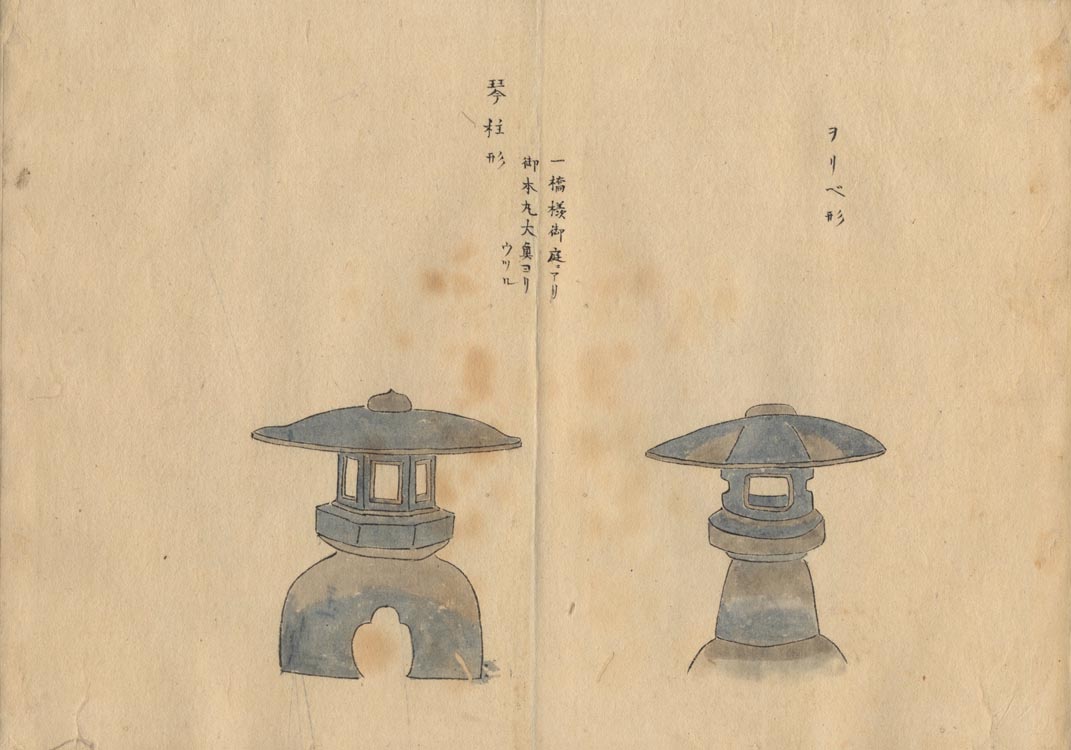 ヲリベ形
一橋様御庭ニアリ
御本丸大奥ヨリ
ウツル
琴柱形